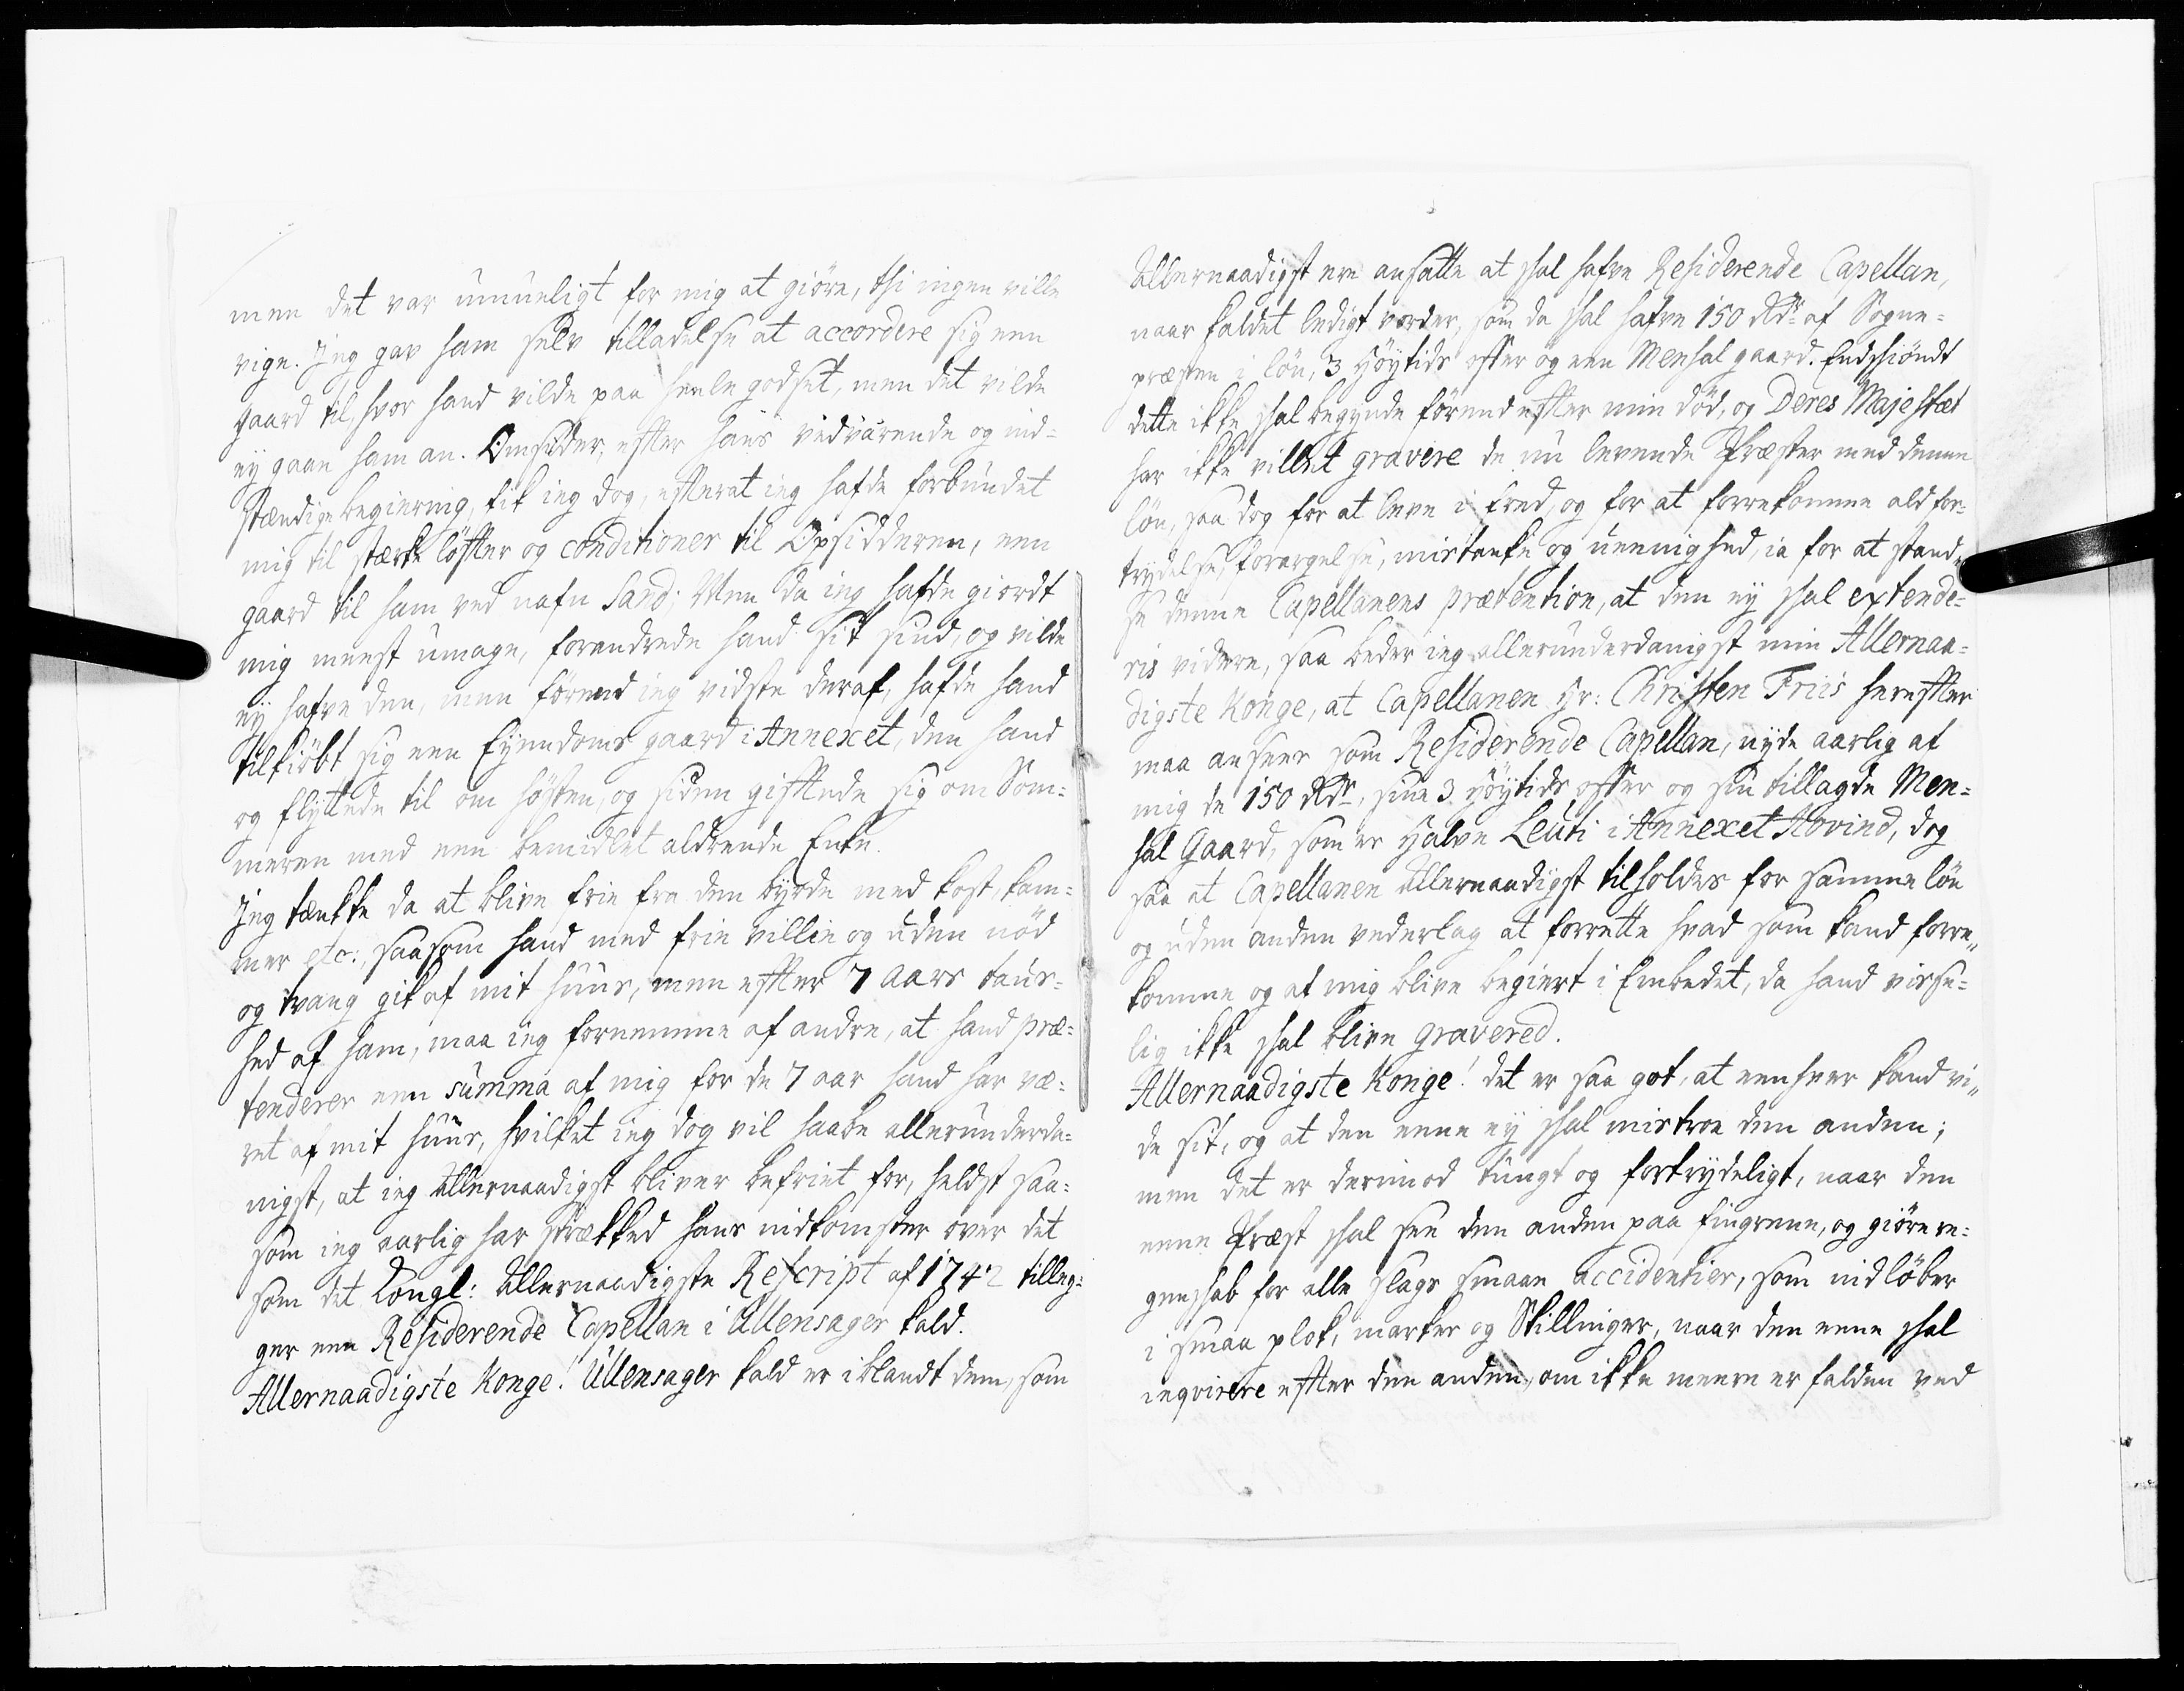 men det var umueligt for mig at giöre, thi ingen ville
vige. Jeg gav ham selv tilladelse at accordere sig een
gaard til, hvor hand vilde paa heele godset, men det vilde
ey gaae ham an. Omsider, efter hans vedvarende og ind¬
stændige begiering, fik ieg dog, efterat ieg hafde forbundet
mig til stærke löfter og conditioner til Opsidderen, een
gaard til ham ved nafn Sand; Men da ieg hafde giordt
mig meest umage, forandrede hand sit sind, og vilde
ey hafve den, men förend ieg vidste deraf, hafde hand
tilkiöbt sig een Eyendoms gaard i Annexet, den hand
og flyttede til om hösten, og siden giftede sig om Som¬
meren med een bemidlet aldrende Enke.
Jeg tænkte da at blive frie fra den byrde med kost, kam¬
mer etc:, saasom hand med frie villie og uden nöd
og tvang gik af mit huus, men efter 7 aars taus¬
hed af ham, maa ieg fornemme af andre, at hand præ¬
tenderer een summa af mig for de 7 aar hand har væ¬
ret af mit huus, hvilket ieg dog vil haabe allerunderda¬
nigst, at ieg Allernaadigst bliver befriet for, heldst saa¬
som ieg aarlig har strækked hans indkomster over det
som det Kongl: Allernaadigste Rescript af 1742 tilleg¬
ger een Residerende Capellan i Ullensager kald.
Allernaadigste Konge! Ullensager kald er iblandt dem, som
Allernaadigst ere ansatte at skal hafve Residerende Capellan,
naar kaldet ledigt vorder, som da skal hafve 150 Rdr af Sogne¬
præsten i lön, 3 Höytids offer og een Mensal gaard. Endskiöndt
dette ikke skal begynde förend efter min död, og Deres Majestæt
har ikke villet gravere de nu levende Præster med denne
lön, saa dog for at leve i fred, og for at forrekomme ald for¬
trydelse, forargelse, mistanke og ueenighed, ia for at stand¬
se denne Capellanens prætention, at den ey skal extende¬
ris videre, saa beder ieg allerunderdanigst min Allernaa¬
digste Konge, at Capellanen Hr: Christen Friis herefter
maa ansees som Residerende Capellan, nyde aarlig af
mig de 150 Rdr, sine 3 Höytids offer og sin tillagde Men¬
sal Gaard, som er Halve Leuti i Annexet Hovind, dog
saa at Capellanen Allernaadigst tilholdes for samme lön
og uden anden vederlag at forrette hvad som kand forre„
komme og af mig blive begiert i Embedet, da hand visse¬
lig ikke skal blive gravered.
Allernaadigste Konge! det er saa got, at eenhver kand vi„
de sit, og at den eene ey skal mistroe den anden;
men det er derimod tungt og fortrydeligt, naar den
eene Præst skal see den anden paa fingrene, og giöre re¬
genskab for alle slags smaae accidentier, som indlöber
i smaa plok, marker og Skillinger, naar den eene skal
inqvirere efter den anden, om ikke meere er falden ved